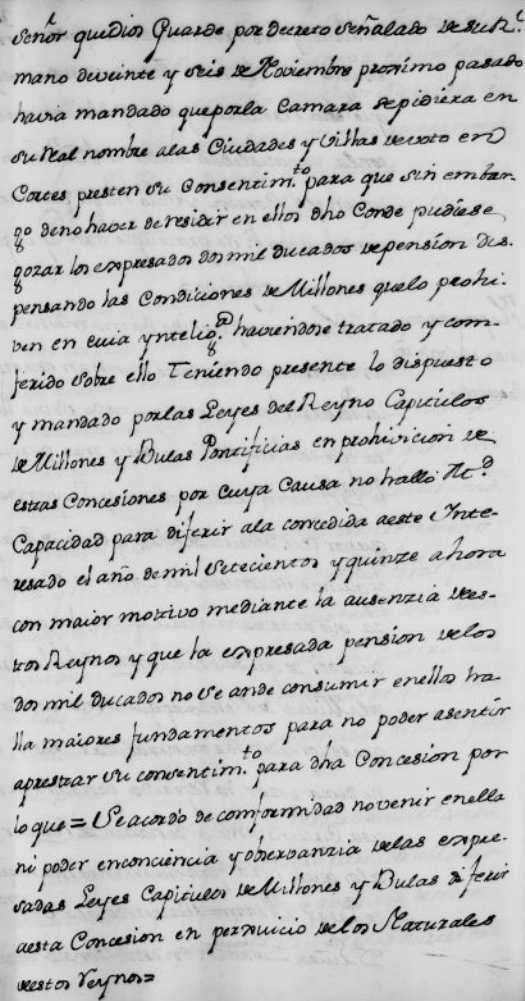 Señor que Dios Guarde por decreto señalado de su Rl.
mano de veinte y seis de Noviembre proximo pasado
havia mandado que por la Camara se pidiera en
su Real nombre a las Ciudades y Villas de voto en
Cortes presten su Consentim.to para que sin embar-
go de no haver de residir en ellos dho Conde pudiese
gozar los expresados dos mil ducados de pension dis-
pensando las Condiciones de Millones que lo prohi-
ven en cuia yntelig.a haviendose tratado y com-
ferido sobre ello Teniendo presente lo dispuesto
y mandado por las Leyes del Reyno Capitulos
de Millones y Bulas Pontificias en prohivicion de
estas Concesiones por cuya Causa no halló
Capacidad para diferir a la concedida a este Inte-
resado el año de mil setecientos y quinze ahora
con maior motivo mediante la ausenzia de es-
tos Reynos y que la expresada pension de los
dos mil ducados no se ande consumir en ellos ha-
lla maiores fundamentos para no poder asentir
a prestar su consentim.to para dha Concesion por
lo que = Se acordó de comformidad no venir en ella
ni poder en conciencia y obserbanzia de las expre-
sadas Leyes Capitulos de Millones y Bulas diferir
a esta Concesion en perxuicio de los Naturales
de estos Reynos =